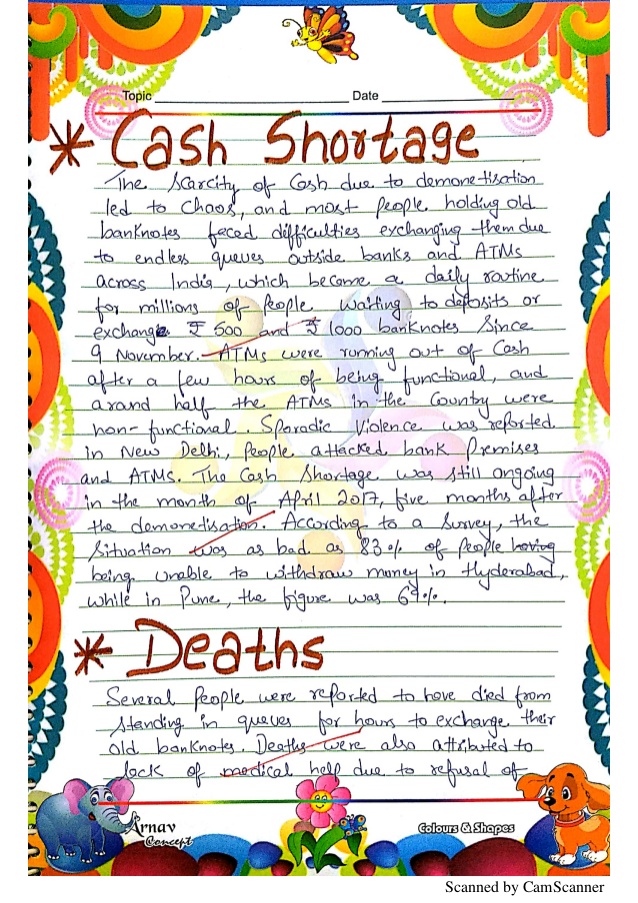 Topic Date
* Cash Shortage
The Scarcity of Cash due to demonetisation
led to Chaos, and most people holding old
banknotes faced difficulties exchanging them due
to endless queues outside banks and ATMs
across India, which became a daily routine
for millions of people waiting to deposits or
exchange ₹ 500 and ₹ 1000 banknotes Since
9 November. ATMs were running out of Cash
after a few hours of being functional, and
arand half the ATMs in the Country were
non-functional. Sporadic Violence was reported
in New Delhi, People attacked bank Premises
and ATMs. The Cash Shortage was still ongoing
in the month of April 2017, five months after
the demonetisation. According to a Survey, the
Situation was as bad as 83% of People having
being unable to withdraw money in Hyderabad,
while in Pune, the figure was 69%.
* Deaths
Several People were reported to have died from
standing in queues for hours to exchange their
old banknotes. Deaths were also attributed to
lack of medical help due to refusal of
Arnav
Concept
Colours & Shapes
Scanned by CamScanner